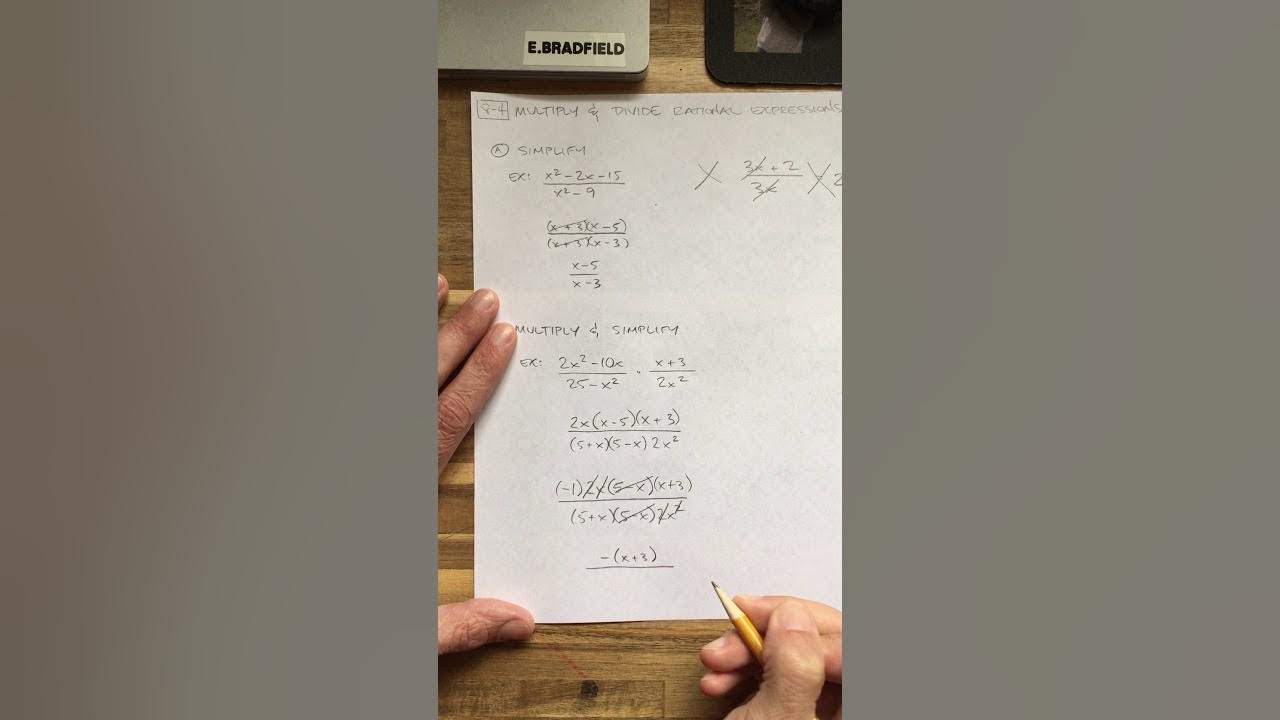 E.BRADFIELD
8-4 MULTIPLY & DIVIDE RATIONAL EXPRESSIONS
Ⓐ SIMPLIFY
EX: (x² - 2x - 15)/(x² - 9)
X (3x + 2)/(3x) X 2
((x+3)(x-5))/((x+3)(x-3))
(x-5)/(x-3)
MULTIPLY & SIMPLIFY
EX: (2x² - 10x)/(25 - x²) · (x+3)/(2x²)
(2x(x-5)(x+3))/((5+x)(5-x)2x²)
((-1)2x(5-x)(x+3))/((5+x)(5-x)2x²)
-(x+3)